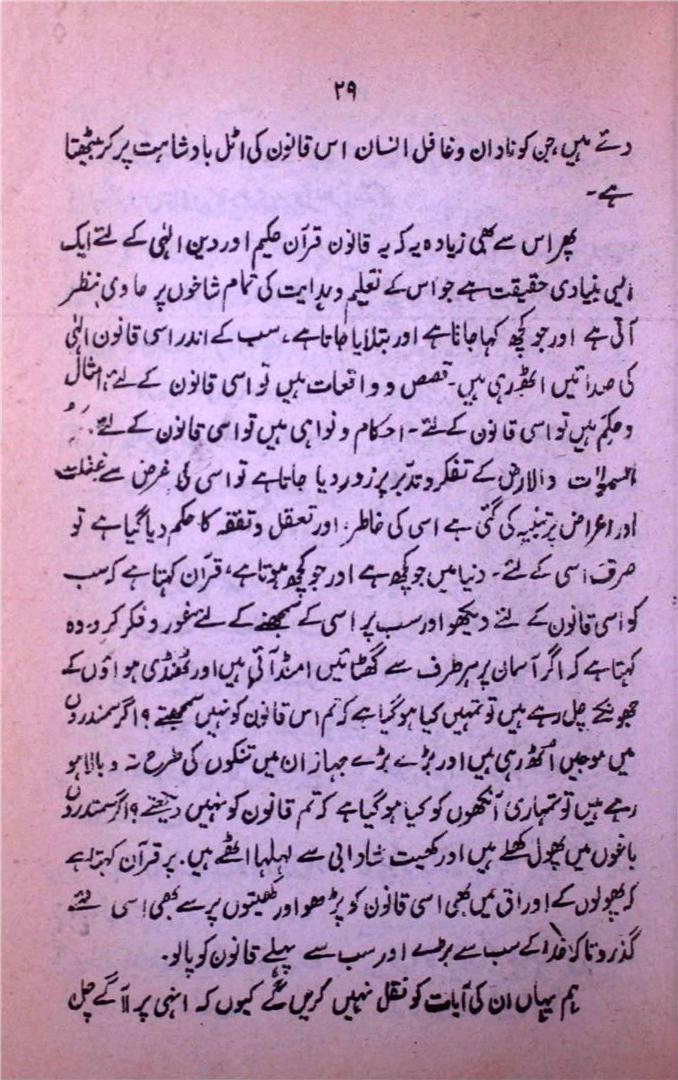 ۲۹
دئے ہیں، جن کو نادان و غافل انسان اس قانون کی اٹل بادشاہت پر کر بیٹھتا
ہے۔
پھر اس سے بھی زیادہ یہ کہ یہ قانون قرآن حکیم اور دین الٰہی کے لئے ایک
ایسی بنیادی حقیقت ہے جو اس کے تعلیم و ہدایت کی تمام شاخوں پر حاوی نظر
آتی ہے اور جو کچھ کہا جاتا ہے اور بتلایا جاتا ہے، سب کے اندر اسی قانون الٰہی
کی صدائیں اٹھ رہی ہیں۔ قصص و واقعات ہیں تو اسی قانون کے لئے، امثال
و حکم ہیں تو اسی قانون کے لئے۔ احکام و نواہی ہیں تو اسی قانون کے لئے۔
السموات والارض کے تفکر و تدبر پر زور دیا جاتا ہے تو اسی کی غرض سے غفلت
اور اعراض پر تنبیہ کی گئی ہے اسی کی خاطر، اور تعقل و تفقہ کا حکم دیا گیا ہے تو
صرف اسی کے لئے۔ دنیا میں جو کچھ ہے اور جو کچھ ہوتا ہے، قرآن کہتا ہے کہ سب
کو اسی قانون کے لئے دیکھو اور سب پر اسی کے سمجھنے کے لئے غور و فکر کرو۔ وہ
کہتا ہے کہ اگر آسمان پر ہر طرف سے گھٹائیں امنڈ آئی ہیں اور ٹھنڈی ہواؤں کے
جھونکے چل رہے ہیں تو تمہیں کیا ہو گیا ہے کہ تم اس قانون کو نہیں سمجھتے؟ اگر سمندروں
میں موجیں اٹھ رہی ہیں اور بڑے بڑے جہاز ان میں تنکوں کی طرح تہ و بالا ہو
رہے ہیں تو تمہاری آنکھوں کو کیا ہو گیا ہے کہ تم قانون کو نہیں دیکھتے؟ اگر سمندروں
باغوں میں پھول کھلے ہیں اور کھیت شادابی سے لہلہا اٹھے ہیں۔ پر قرآن کہتا ہے
کہ پھولوں کے اوراق میں بھی اسی قانون کو پڑھو اور کھیتوں پر سے بھی اسی لئے
گذرو تاکہ خدا کے سب سے بڑے اور سب سے پہلے قانون کو پالو۔
ہم یہاں ان کی آیات کو نقل نہیں کریں گے کیوں کہ انہی پر آگے چل